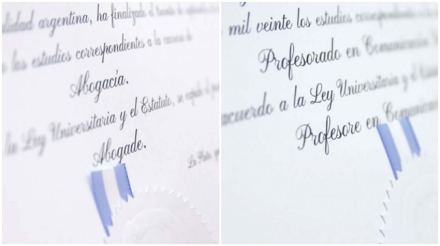 argentina, ha finalizado
los estudios correspondientes a la carrera de
Abogacía.
Ley Universitaria y el Estatuto, se expide el
Abogade.
La Plata,
mil veinte los estudios correspondientes
Profesorado en Comunicación
acuerdo a la Ley Universitaria y el
Profesore en Comunicac